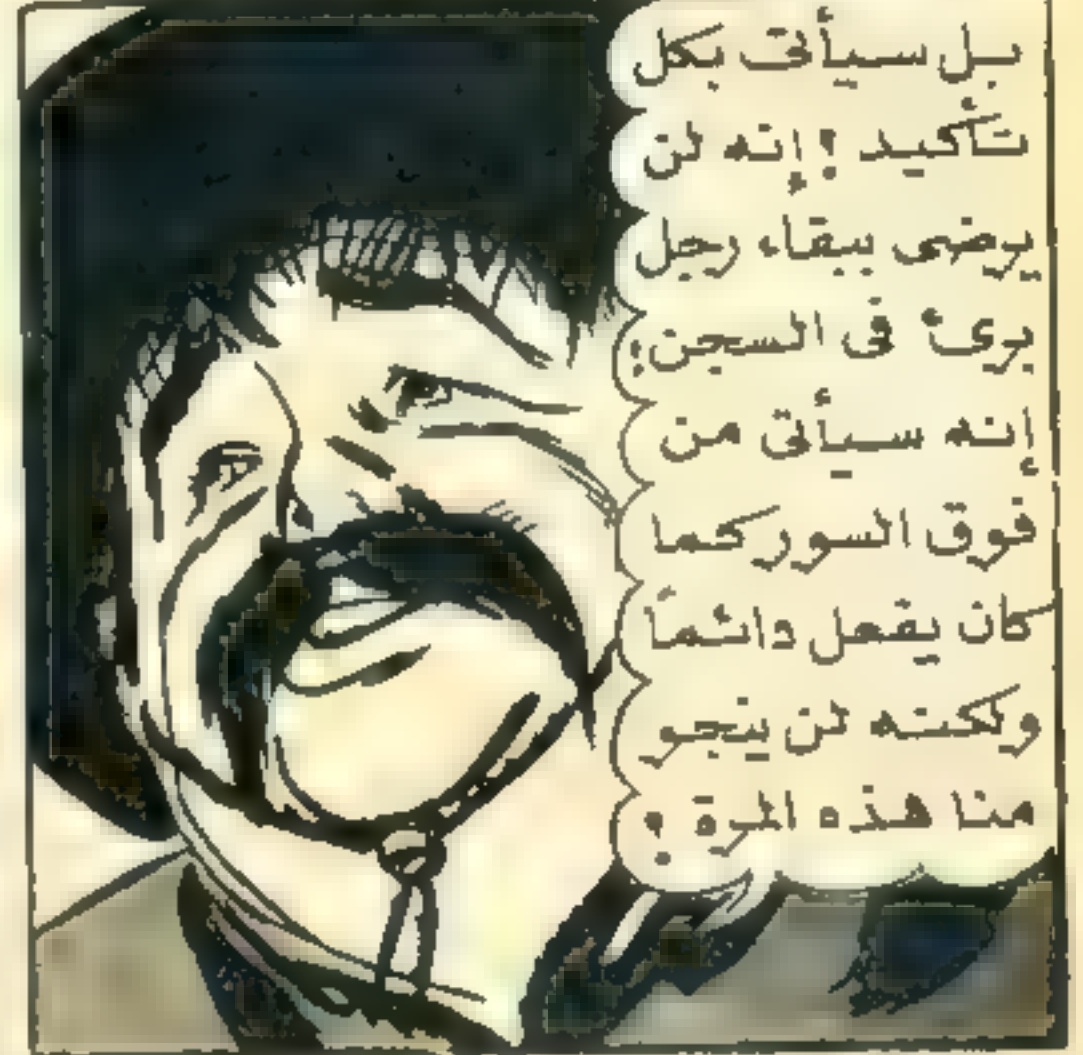 بل سيأتى بكل
تأكيد ! إنه لن
يرضى ببقاء رجل
برئ فى السجن !
إنه سيأتى من
فوق السور كما
كان يفعل دائمًا
ولكنه لن ينجو
منا هذه المرة !